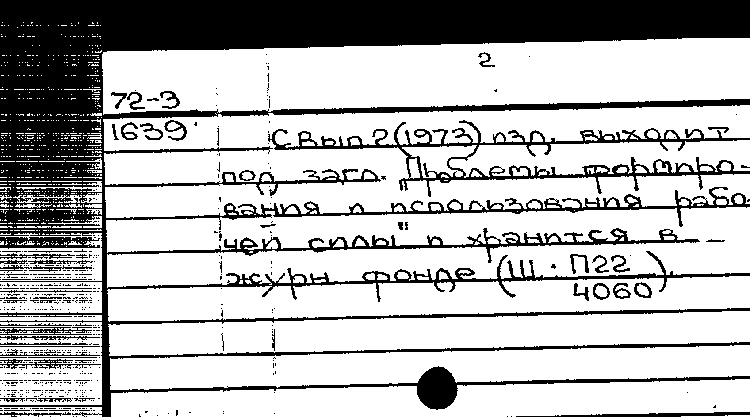 2
72-3
1639
С вып. 2 (1973) изд. выходит
под загл. "Проблемы формиро-
вания и использования рабо-
чей силы" и хранится в
журн фонде (Ш · П22
4060).